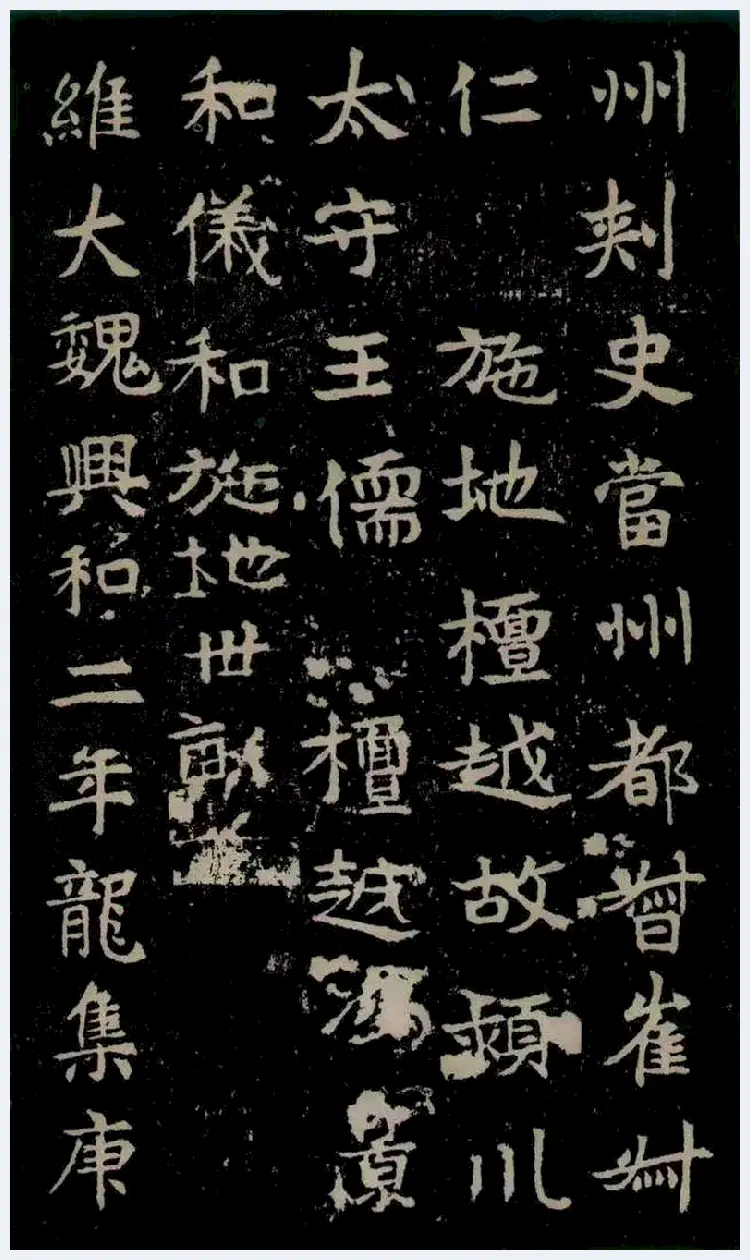 州刺史當州都督崔叔
仁 施地檀越故潁川
太守王儒 檀越
和儀和施地世
維大魏興和二年龍集庚